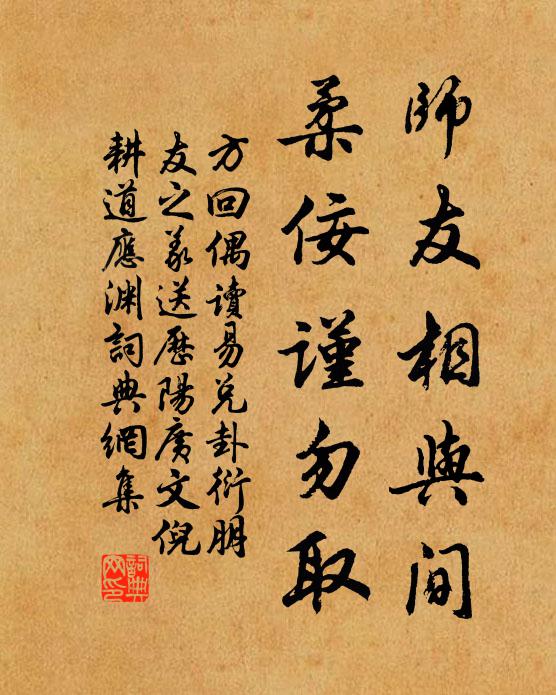 師友相與間
柔佞謹勿取
方回偶讀易兌卦衍朋
友之義送歷陽廣文倪
耕道應淵詞典網集
詞典
网印